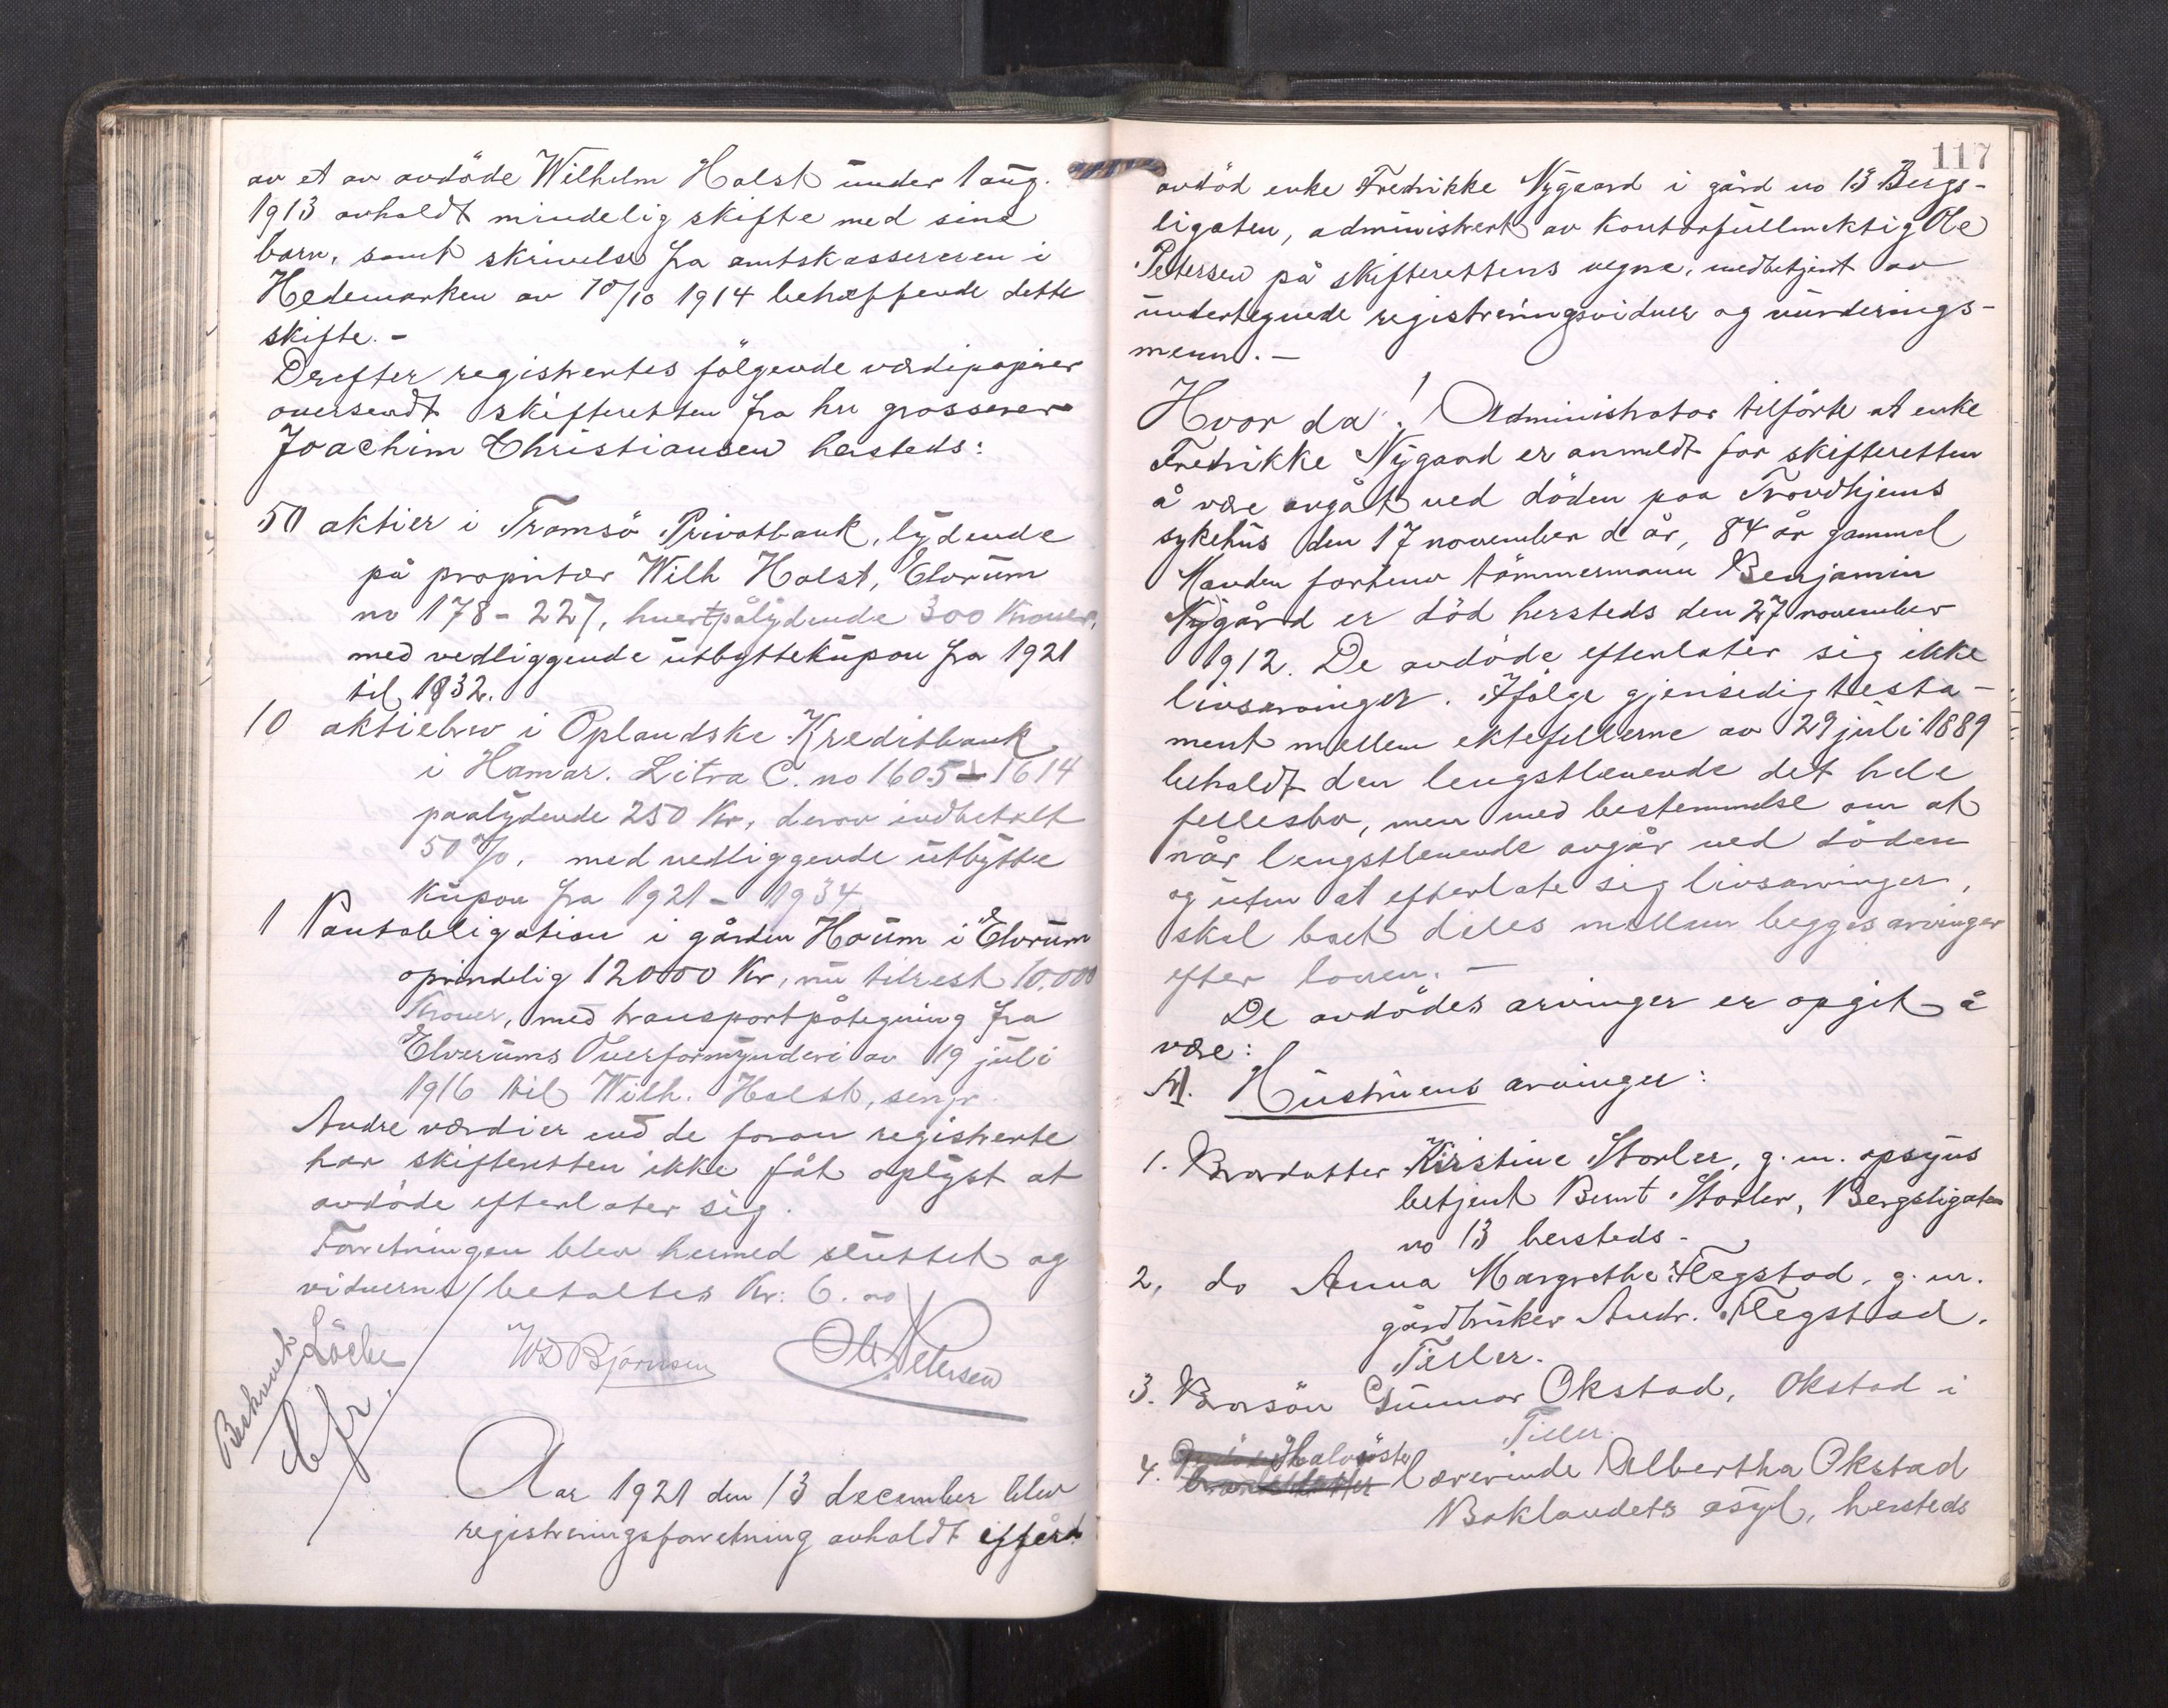 av et av avdöde Wilhelm Holst under 1 aug.
1913 avholdt mindelig skifte med sine
barn, samt skrivelse fra amtskassereren i
Hedemarken av 10/10 1914 betræffende dette
skifte. -
Derefter registrertes fölgende værdipapirer
oversendt skifteretten fra hr grosserer
Joachim Christiansen hersteds:
50 aktier i Tromsö Privatbank, lydende
på proprietær Wilh Holst, Elvrum
no 178 - 227, hvert pålydende 300 Kroner,
med vedliggende utbyttekupon fra 1921
til 1932.
10 aktiebrev i Oplandske Kreditbank
i Hamar. Litra C. no 1605 - 1614
paalydende 250 Kr, derav indbetalt
50 %, med vedliggende utbytte
kupon fra 1921 - 1934
1 Pantobligation i gården Houm i Elvrum
oprindelig 12000 Kr, nu tilrest 10.000
Kroner, med transportpåtegning fra
Elverums Overformynderi av 19 juli
1916 til Wilh. Holst, senjr.
Andre værdier end de foran registrerte
har skifteretten ikke fåt oplyst at
avdöde efterlater sig.
Forretningen blev hermed sluttet og
vidnerne betaltes Kr: 6.00
Beskrevet Löche
Cfr.
WD Bjørnsen Ole Petersen
Aar 1921 den 13 december blev
registreringsforretning avholdt efter
117
avdöd enke Fredrikke Nygaard i gård no 13 Bergs-
ligaten, administrert av kontorfuldmektig Ole
Petersen på skifterettens vegne, medbetjent av
undertegnede registreringsvidner og vurderings-
menn. -
Hvor da! Administrator tilförte at enke
Fredrikke Nygaard er anmeldt for skifteretten
å være avgåt ved döden paa Trondhjems
sykehus den 17 november d år, 84 år gammel
Manden forhenv tömmermann Benjamin
Nygård er död hersteds den 27 november
1912. De avdöde efterlater sig ikke
livsarvinger. Ifölge gjensedig testa-
ment mellem ektefellerne av 29 juli 1889
beholdt den lengstlevende det hele
fellesbo, men med bestemmelse om at
når lengstlevende avgår ved döden
og uten at efterlate sig livsarvinger,
skal boet deles mellem begges arvinger
efter loven. -
De avdödes arvinger er opgit å
være:
A. Hustruens arvinger:
1. Brordatter Kirstine Storler, g. m. opsyns
betjent Bernt Storler, Bergsligaten
no 13 hersteds -
2. do Anna Margrethe Flegstad, g. m.
gårdbruker Andr. Flegstad.
Tiller.
3. Brorsön Gunnar Okstad, Okstad i
Tiller.
4. Halvsöster lærerinde Albertha Okstad
Baklandets asyl, hersteds